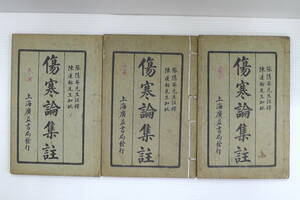 張隱菴先生註釋
陳蓮舫先生加批
傷寒論集註
上海廣益書局發行
張隱菴先生註釋
陳蓮舫先生加批
傷寒論集註
上海廣益書局發行
張隱菴先生註釋
陳蓮舫先生加批
傷寒論集註
上海廣益書局發行